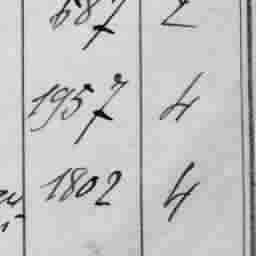 687 2
1957 4
1802 4